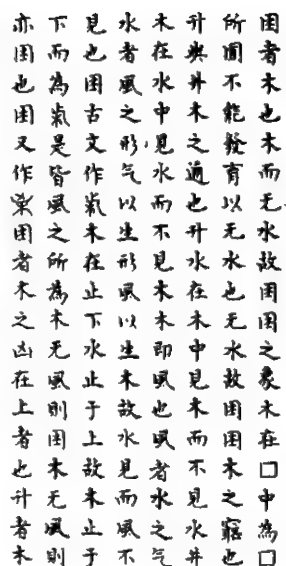 困者木也木而无水故困困之象木在口中為口
所囿不能發育以无水也无水故困困木之窮也
升與井木之通也升水在木中見木而不見水井
木在水中見水而不見木木即風也風者水之气
水者風之形气以生形風以生木故水見而風不
見也困古文作木在止下水止于上故木止于
下而為是皆風之所為木无風則困木无風則
亦困也困又作困者木之凶在上者也升者木